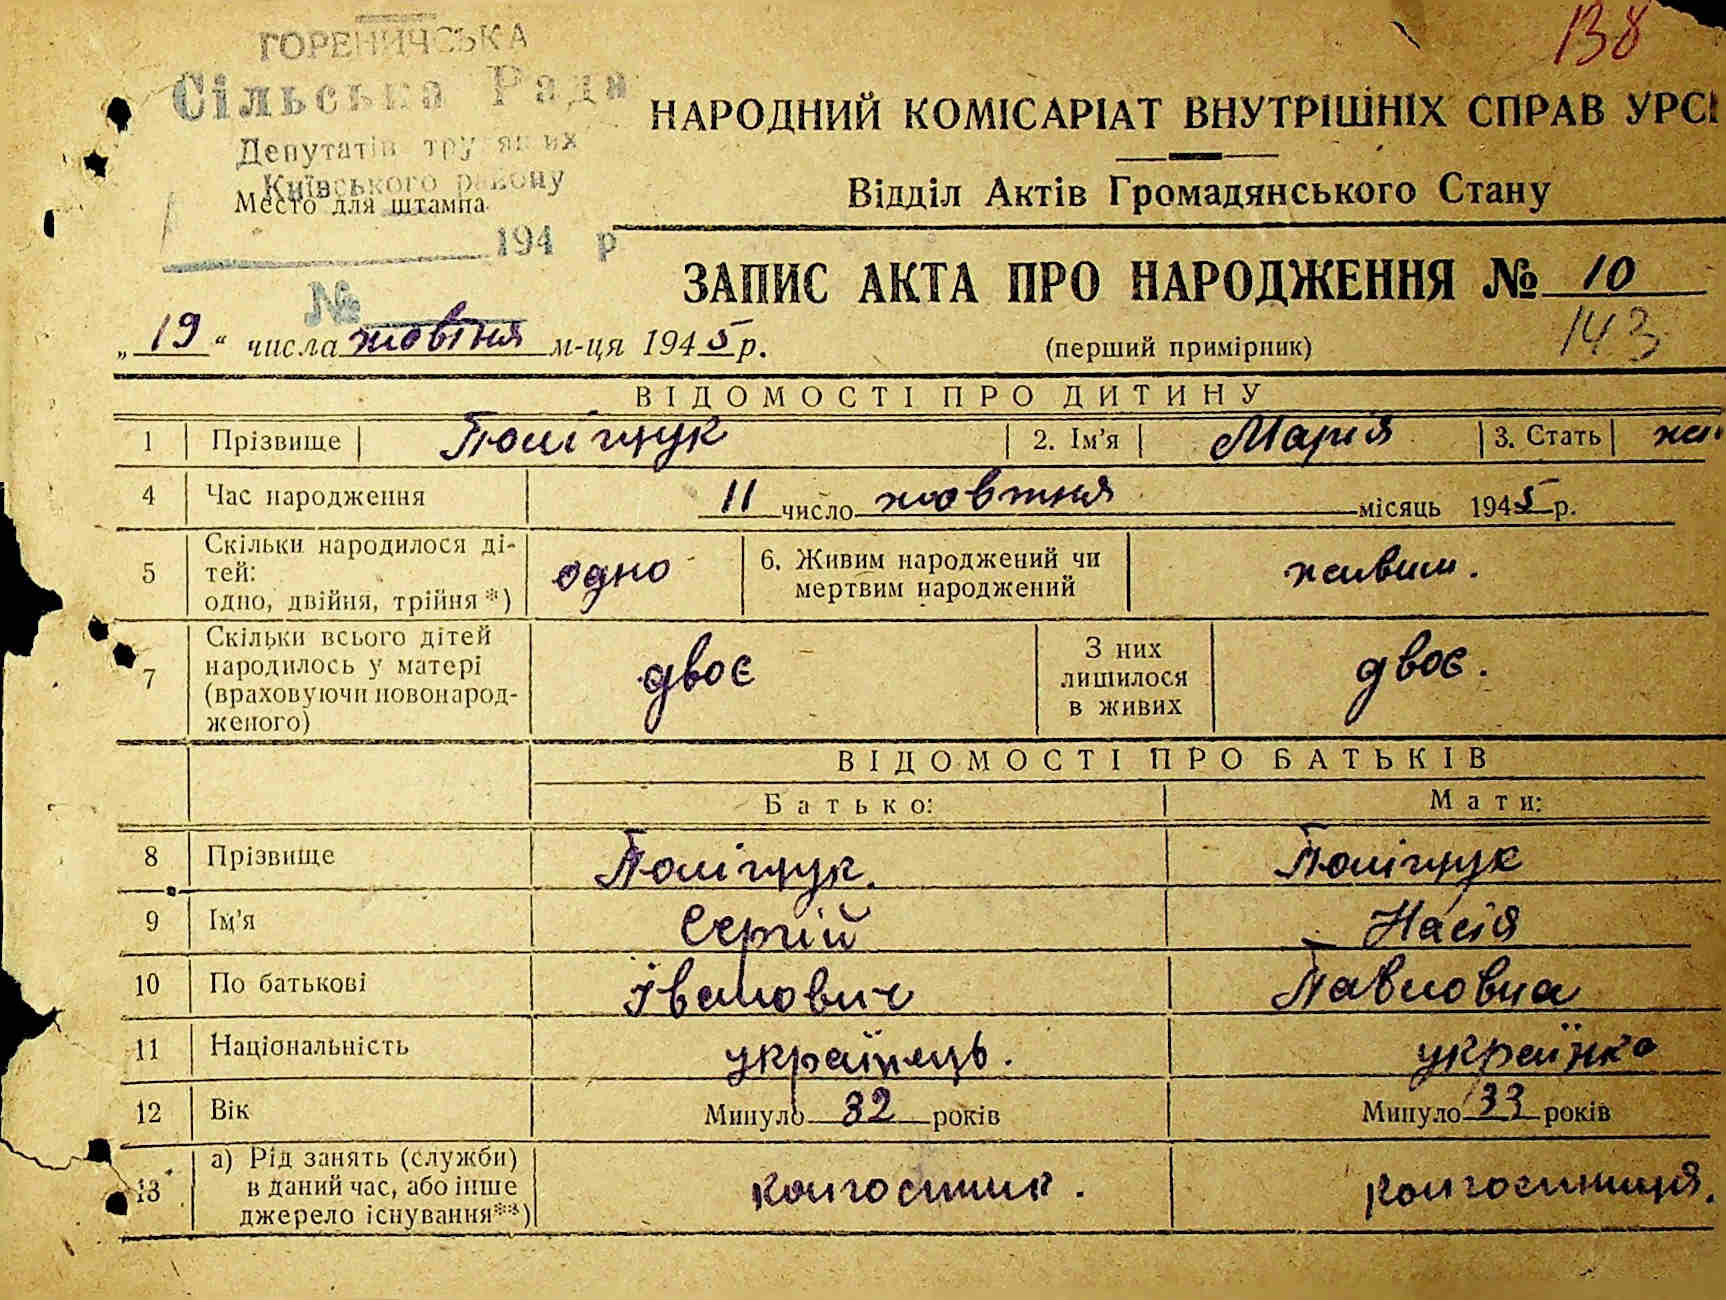 138
ГОРЕНИЧСЬКА
Сільська Рада
Депутатів трудящих
Київського району
Место для штампа
194 р
№
НАРОДНИЙ КОМІСАРІАТ ВНУТРІШНІХ СПРАВ УРСР
Відділ Актів Громадянського Стану
ЗАПИС АКТА ПРО НАРОДЖЕННЯ № 10
„19“ числа жовтня м-ця 1945 р. (перший примірник) 143
ВІДОМОСТІ ПРО ДИТИНУ
1 Прізвище Поліщук 2. Ім'я Марія 3. Стать жін
4 Час народження 11 число жовтня місяць 1945 р.
5 Скільки народилося ді-
тей:
одно, двійня, трійня*) одно 6. Живим народжений чи
мертвим народжений живим.
7 Скільки всього дітей
народилось у матері
(враховуючи новонарод-
женого) двоє З них
лишилося
в живих двоє.
ВІДОМОСТІ ПРО БАТЬКІВ
Батько: Мати:
8 Прізвище Поліщук. Поліщук
9 Ім'я Сергій Насія
10 По батькові Іванович Павловна
11 Національність українець. українка
12 Вік Минуло 32 років Минуло 33 років
13 а) Рід занять (служби)
в даний час, або інше
джерело існування**) колгоспник. колгоспниця.